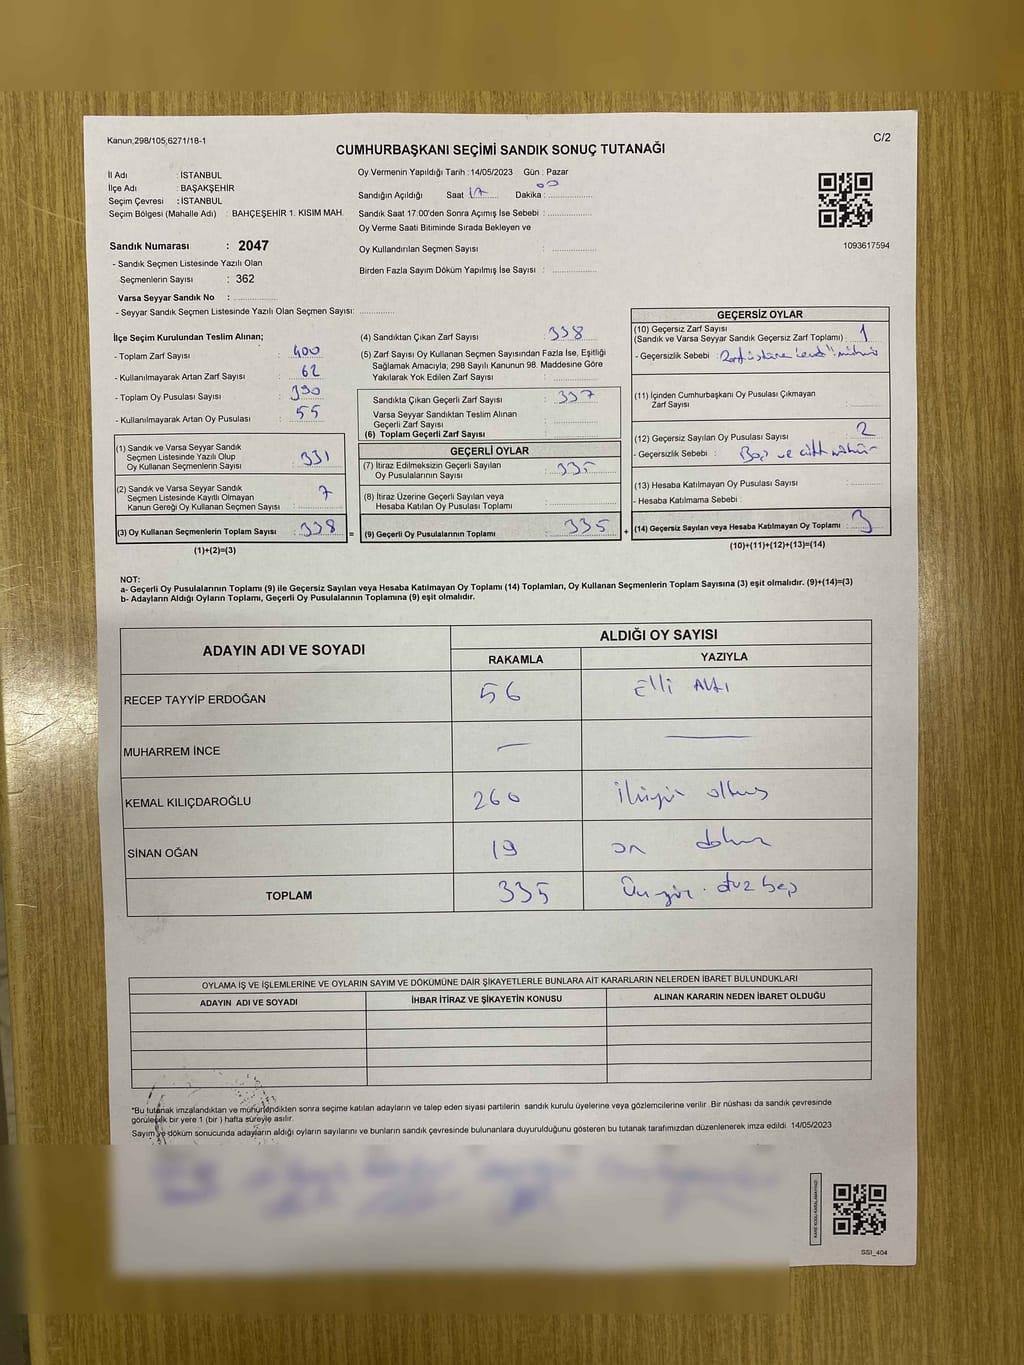 Kanun;298/105;6271/18-1
C/2
CUMHURBAŞKANI SEÇİMİ SANDIK SONUÇ TUTANAĞI
İl Adı : İSTANBUL
İlçe Adı : BAŞAKŞEHİR
Seçim Çevresi : İSTANBUL
Seçim Bölgesi (Mahalle Adı) : BAHÇEŞEHİR 1. KISIM MAH.
Sandık Numarası : 2047
- Sandık Seçmen Listesinde Yazılı Olan
Seçmenlerin Sayısı : 362
Varsa Seyyar Sandık No :
- Seyyar Sandık Seçmen Listesinde Yazılı Olan Seçmen Sayısı:
Oy Vermenin Yapıldığı Tarih : 14/05/2023 Gün : Pazar
Sandığın Açıldığı Saat 17 Dakika : 00
Sandık Saat 17:00'den Sonra Açımış İse Sebebi :
Oy Verme Saati Bitiminde Sırada Bekleyen ve
Oy Kullandırılan Seçmen Sayısı :
Birden Fazla Sayım Döküm Yapılmış İse Sayısı :
1093617594
İlçe Seçim Kurulundan Teslim Alınan;
- Toplam Zarf Sayısı : 400
- Kullanılmayarak Artan Zarf Sayısı : 62
- Toplam Oy Pusulası Sayısı : 390
- Kullanılmayarak Artan Oy Pusulası : 55
(1) Sandık ve Varsa Seyyar Sandık
Seçmen Listesinde Yazılı Olup
Oy Kullanan Seçmenlerin Sayısı : 331
(2) Sandık ve Varsa Seyyar Sandık
Seçmen Listesinde Kayıtlı Olmayan
Kanun Gereği Oy Kullanan Seçmen Sayısı : 7
(3) Oy Kullanan Seçmenlerin Toplam Sayısı : 338
(1)+(2)=(3)
(4) Sandıktan Çıkan Zarf Sayısı : 338
(5) Zarf Sayısı Oy Kullanan Seçmen Sayısından Fazla İse, Eşitliği
Sağlamak Amacıyla; 298 Sayılı Kanunun 98. Maddesine Göre
Yakılarak Yok Edilen Zarf Sayısı :
Sandıkta Çıkan Geçerli Zarf Sayısı : 337
Varsa Seyyar Sandıktan Teslim Alınan
Geçerli Zarf Sayısı :
(6) Toplam Geçerli Zarf Sayısı :
GEÇERLİ OYLAR
(7) İtiraz Edilmeksizin Geçerli Sayılan
Oy Pusulalarının Sayısı : 335
(8) İtiraz Üzerine Geçerli Sayılan veya
Hesaba Katılan Oy Pusulası Toplamı :
= (9) Geçerli Oy Pusulalarının Toplamı : 335 +
GEÇERSİZ OYLAR
(10) Geçersiz Zarf Sayısı
(Sandık ve Varsa Seyyar Sandık Geçersiz Zarf Toplamı) : 1
- Geçersizlik Sebebi :
(11) İçinden Cumhurbaşkanı Oy Pusulası Çıkmayan
Zarf Sayısı :
(12) Geçersiz Sayılan Oy Pusulası Sayısı : 2
- Geçersizlik Sebebi : Boş ve çift mühür
(13) Hesaba Katılmayan Oy Pusulası Sayısı :
- Hesaba Katılmama Sebebi :
(14) Geçersiz Sayılan veya Hesaba Katılmayan Oy Toplamı : 3
(10)+(11)+(12)+(13)=(14)
NOT:
a- Geçerli Oy Pusulalarının Toplamı (9) ile Geçersiz Sayılan veya Hesaba Katılmayan Oy Toplamı (14) Toplamları, Oy Kullanan Seçmenlerin Toplam Sayısına (3) eşit olmalıdır. (9)+(14)=(3)
b- Adayların Aldığı Oyların Toplamı, Geçerli Oy Pusulalarının Toplamına (9) eşit olmalıdır.
ADAYIN ADI VE SOYADI
ALDIĞI OY SAYISI
RAKAMLA YAZIYLA
RECEP TAYYİP ERDOĞAN 56 Elli Altı
MUHARREM İNCE — —
KEMAL KILIÇDAROĞLU 260 ikiyüz altmış
SİNAN OĞAN 19 on dokuz
TOPLAM 335 Üçyüz otuz beş
OYLAMA İŞ VE İŞLEMLERİNE VE OYLARIN SAYIM VE DÖKÜMÜNE DAİR ŞİKAYETLERLE BUNLARA AİT KARARLARIN NELERDEN İBARET BULUNDUKLARI
ADAYIN ADI VE SOYADI İHBAR İTİRAZ VE ŞİKAYETİN KONUSU ALINAN KARARIN NEDEN İBARET OLDUĞU
*Bu tutanak imzalandıktan ve mühürlendikten sonra seçime katılan adayların ve talep eden siyasi partilerin sandık kurulu üyelerine veya gözlemcilerine verilir. Bir nüshası da sandık çevresinde
görülecek bir yere 1 (bir) hafta süreyle asılır.
Sayım ve döküm sonucunda adayların aldığı oyların sayılarını ve bunların sandık çevresinde bulunanlara duyurulduğunu gösteren bu tutanak tarafımızdan düzenlenerek imza edildi. 14/05/2023
SSI_404